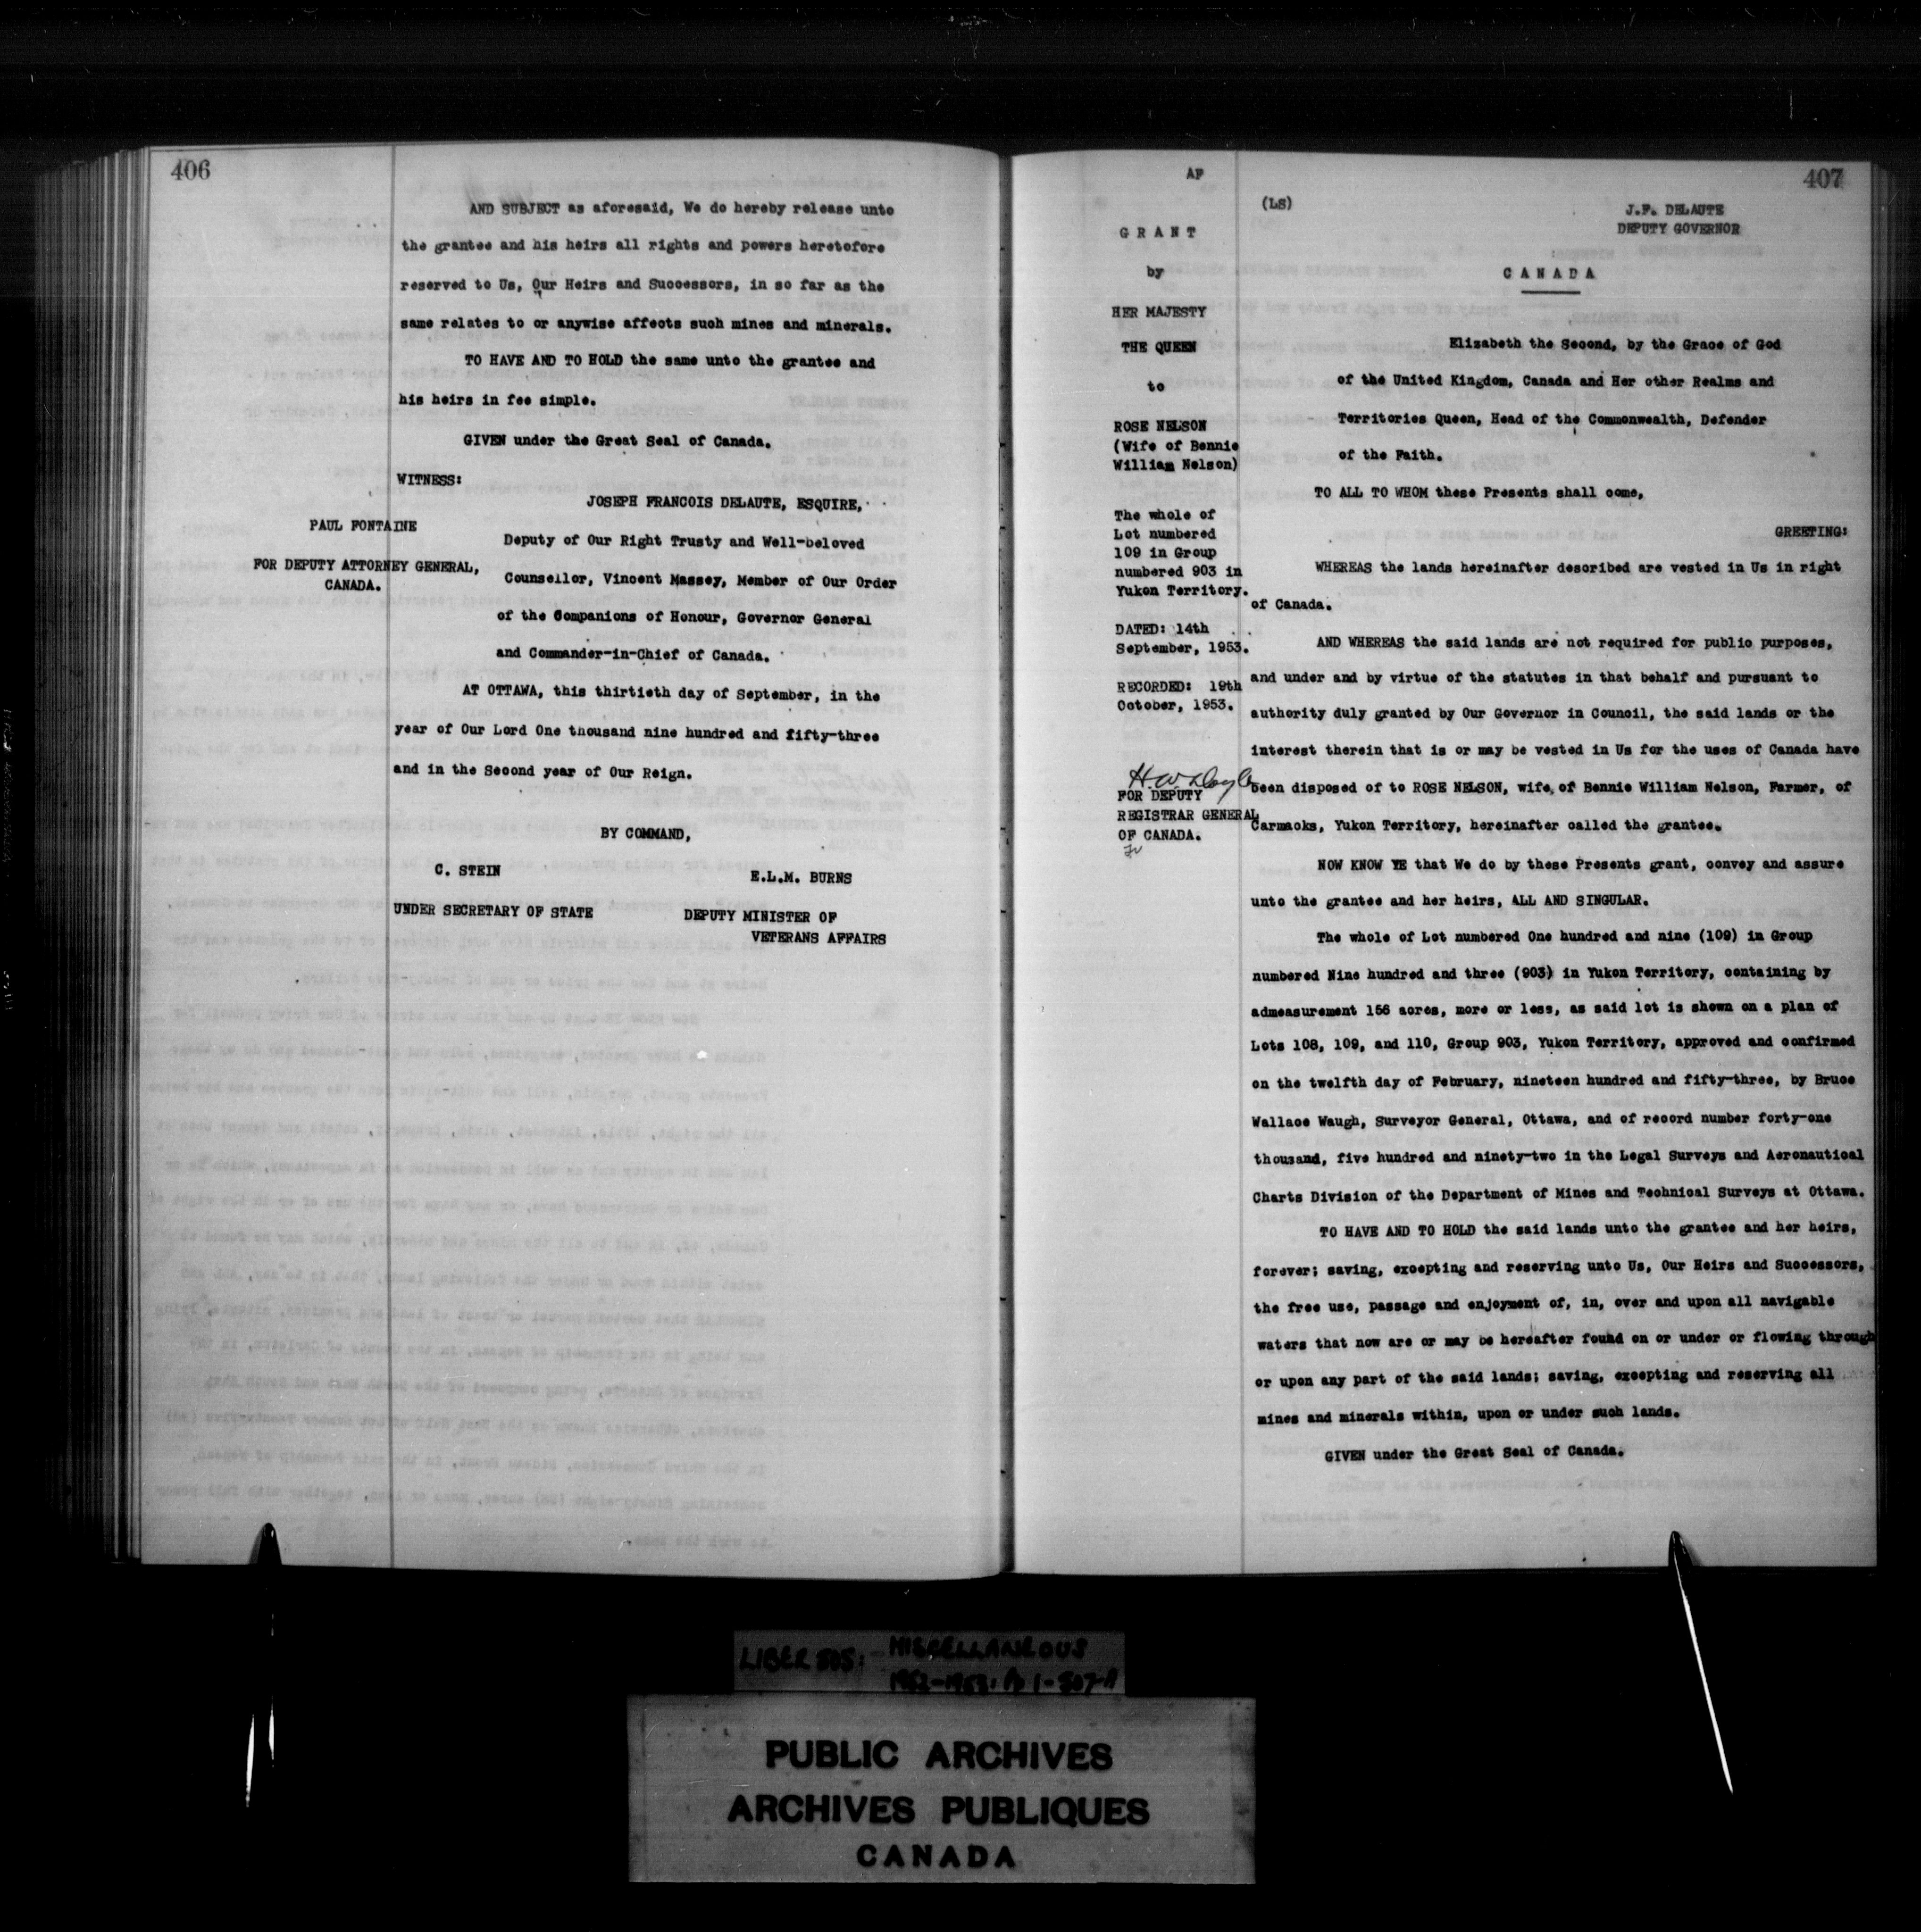 406
AND SUBJECT as aforesaid, We do hereby release unto
the grantee and his heirs all rights and powers heretofore
reserved to Us, Our Heirs and Successors, in so far as the
same relates to or anywise affects such mines and minerals.
TO HAVE AND TO HOLD the same unto the grantee and
his heirs in fee simple.
GIVEN under the Great Seal of Canada.
WITNESS:
JOSEPH FRANCOIS DELAUTE, ESQUIRE,
PAUL FONTAINE
FOR DEPUTY ATTORNEY GENERAL,
CANADA.
Deputy of Our Right Trusty and Well-beloved
Counsellor, Vincent Massey, Member of Our Order
of the Companions of Honour, Governor General
and Commander-in-Chief of Canada.
AT OTTAWA, this thirtieth day of September, in the
year of Our Lord One thousand nine hundred and fifty-three
and in the Second year of Our Reign.
BY COMMAND,
C. STEIN
UNDER SECRETARY OF STATE
E.L.M. BURNS
DEPUTY MINISTER OF
VETERANS AFFAIRS
407
AF
GRANT
by
HER MAJESTY
THE QUEEN
to
ROSE NELSON
(Wife of Bennie
William Nelson)
The whole of
Lot numbered
109 in Group
numbered 903 in
Yukon Territory.
DATED: 14th
September, 1953.
RECORDED: 19th
October, 1953.
H.W. Doyle
FOR DEPUTY
REGISTRAR GENERAL
OF CANADA.
(LS)
J.F. DELAUTE
DEPUTY GOVERNOR
CANADA
Elizabeth the Second, by the Grace of God
of the United Kingdom, Canada and Her other Realms and
Territories Queen, Head of the Commonwealth, Defender
of the Faith.
TO ALL TO WHOM these Presents shall come,
GREETING:
WHEREAS the lands hereinafter described are vested in Us in right
of Canada.
AND WHEREAS the said lands are not required for public purposes,
and under and by virtue of the statutes in that behalf and pursuant to
authority duly granted by Our Governor in Council, the said lands or the
interest therein that is or may be vested in Us for the uses of Canada have
been disposed of to ROSE NELSON, wife of Bennie William Nelson, Farmer, of
Carmacks, Yukon Territory, hereinafter called the grantee.
NOW KNOW YE that We do by these Presents grant, convey and assure
unto the grantee and her heirs, ALL AND SINGULAR.
The whole of Lot numbered One hundred and nine (109) in Group
numbered Nine hundred and three (903) in Yukon Territory, containing by
admeasurement 156 acres, more or less, as said lot is shown on a plan of
Lots 108, 109, and 110, Group 903, Yukon Territory, approved and confirmed
on the twelfth day of February, nineteen hundred and fifty-three, by Bruce
Wallace Waugh, Surveyor General, Ottawa, and of record number forty-one
thousand, five hundred and ninety-two in the Legal Surveys and Aeronautical
Charts Division of the Department of Mines and Technical Surveys at Ottawa.
TO HAVE AND TO HOLD the said lands unto the grantee and her heirs,
forever; saving, excepting and reserving unto Us, Our Heirs and Successors,
the free use, passage and enjoyment of, in, over and upon all navigable
waters that now are or may be hereafter found on or under or flowing through
or upon any part of the said lands; saving, excepting and reserving all
mines and minerals within, upon or under such lands.
GIVEN under the Great Seal of Canada.
LIBER 505: MISCELLANEOUS
PUBLIC ARCHIVES
ARCHIVES PUBLIQUES
CANADA